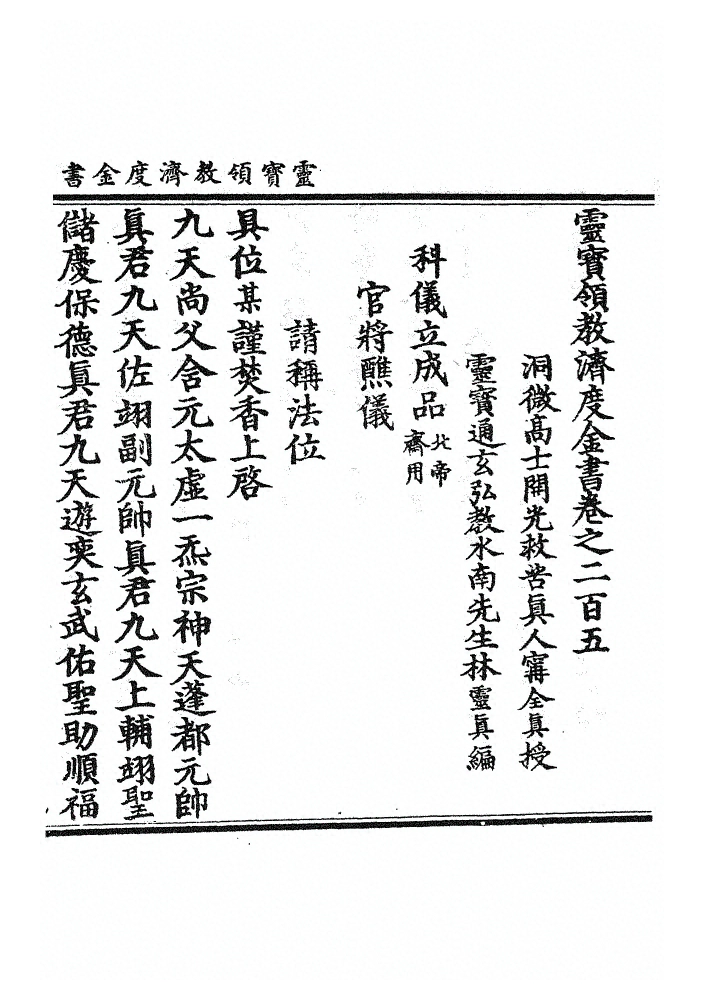 靈寶領教濟度金書
靈寶領教濟度金書卷之二百五
洞微高士開光救苦眞人甯全眞授
靈寶通玄弘教水南先生林靈眞編
科儀立成品北帝齋用
官將醮儀
請稱法位
具位某謹焚香上啓
九天尚父含元太虛一炁宗神天蓬都元帥
眞君九天佐翊副元帥眞君九天上輔翊聖
儲慶保德眞君九天遊奕玄武佑聖助順福